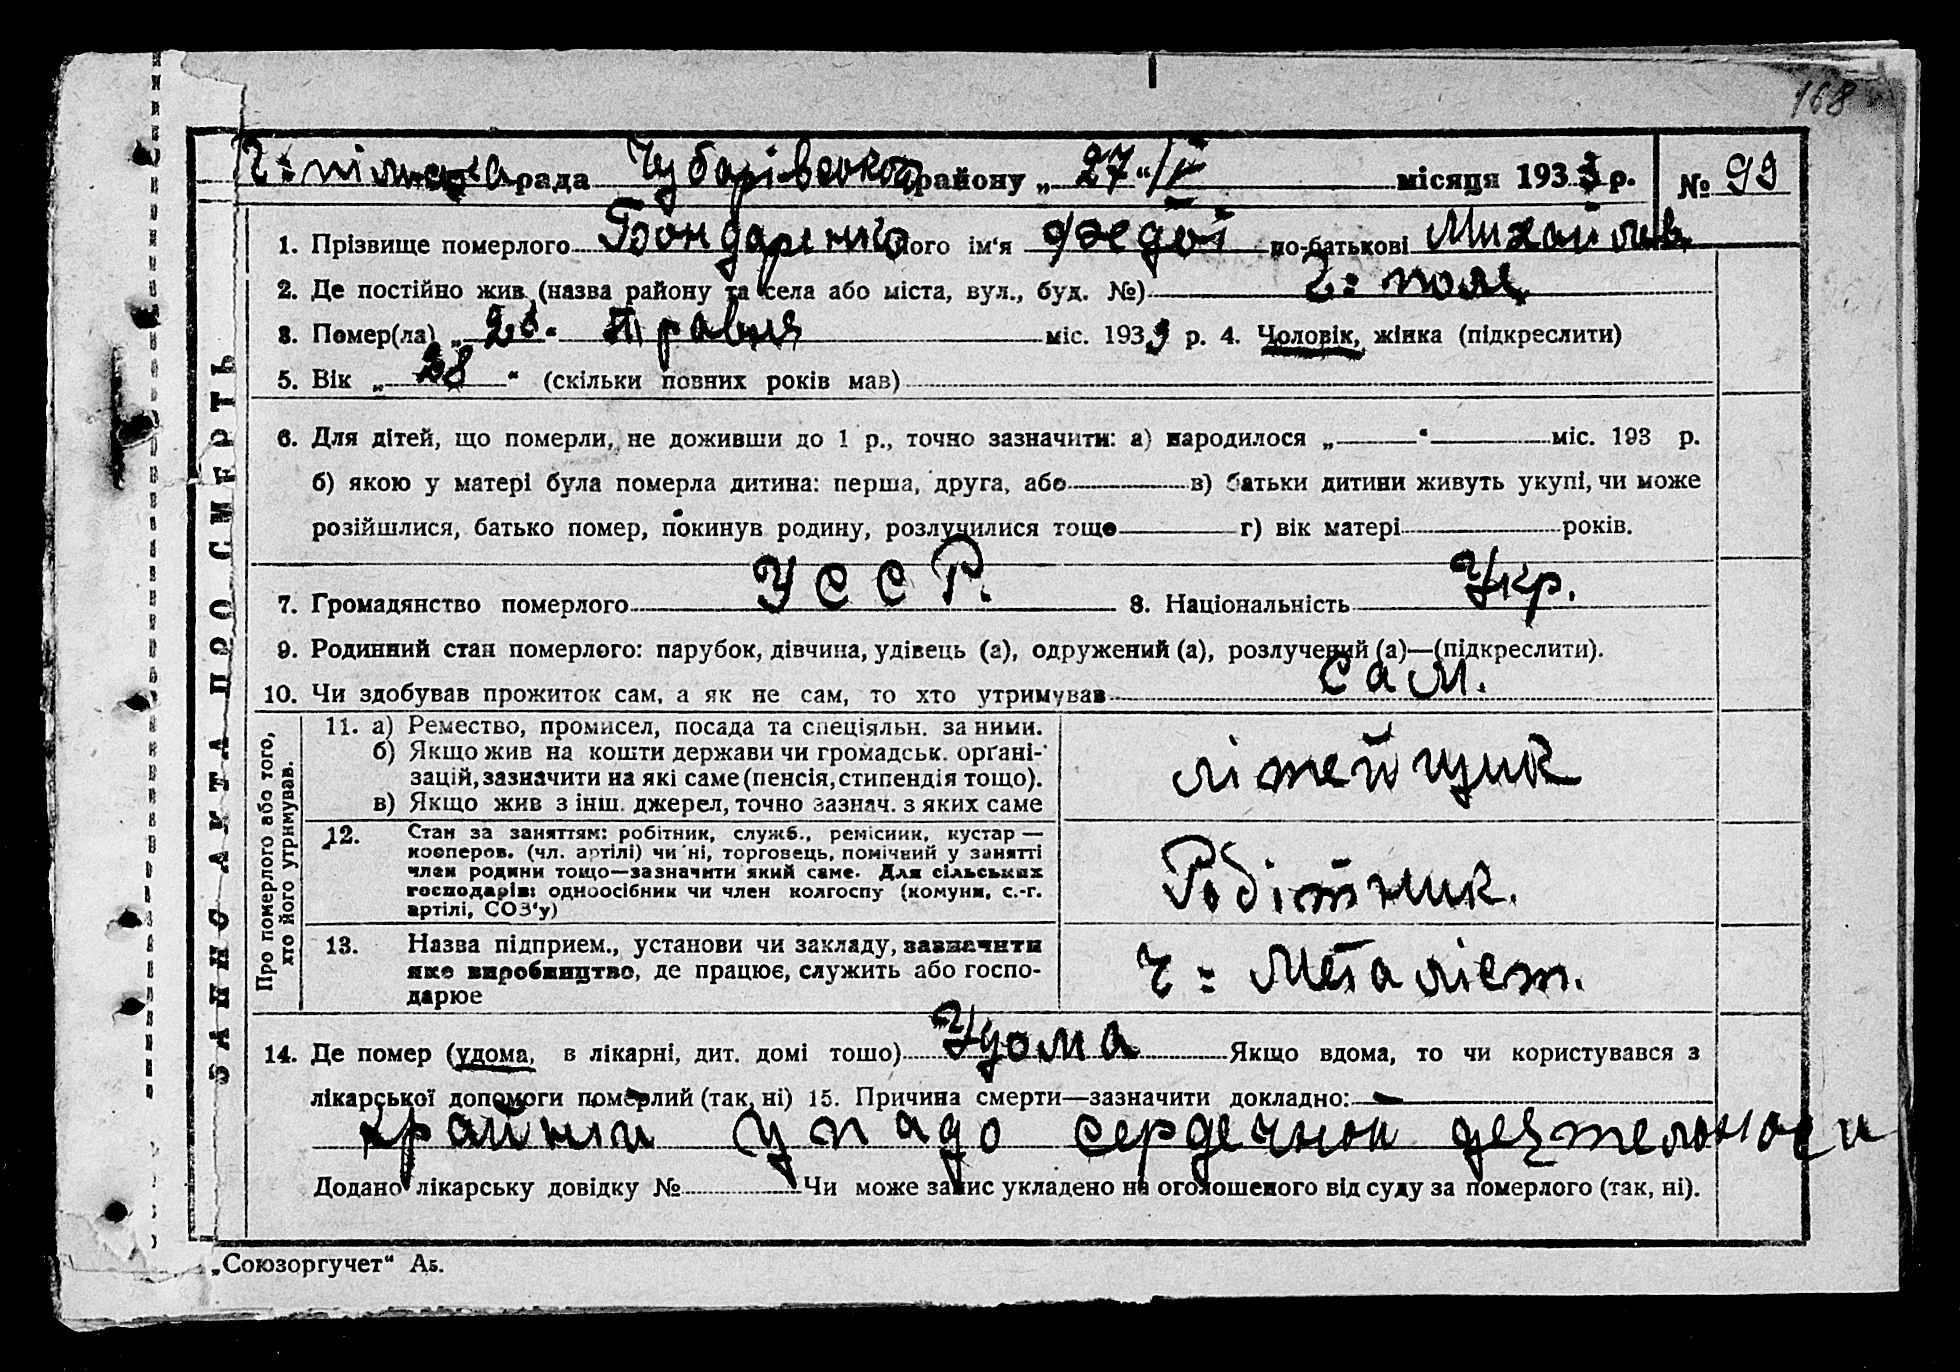 168
Г: пільська рада Чубарівского району „27“/V місяця 1933 р. № 99
1. Прізвище померлого Бондаренко його ім‘я Федот по-батькові Михайлов.
2. Де постійно жив (назва району та села або міста, вул., буд. №) Г: поле
3. Помер(ла) „26“ Травня міс. 1933 р. 4. Чоловік, жінка (підкреслити)
5. Вік „38“ (скільки повних років мав)
6. Для дітей, що померли, не доживши до 1 р., точно зазначити: а) народилося „ “ міс. 193 р.
б) якою у матері була померла дитина: перша, друга, або в) батьки дитини живуть укупі, чи може
розійшлися, батько помер, покинув родину, розлучилися тощо г) вік матері років.
7. Громадянство померлого УССР. 8. Національність Укр.
9. Родинний стан померлого: парубок, дівчина, удівець (а), одружений (а), розлучений (а)—(підкреслити).
10. Чи здобував прожиток сам, а як не сам, то хто утримував Сам.
Про померлого або того, хто його утримував.
11. а) Ремество, промисел, посада та спеціяльн. за ними.
б) Якщо жив на кошти держави чи громадськ. орґані-
зацій, зазначити на які саме (пенсія, стипендія тощо).
в) Якщо жив з інш. джерел, точно зазнач. з яких саме
літейщик
12. Стан за заняттям: робітник, служб., ремісник, кустар —
кооперов. (чл. артілі) чи ні, торговець, помічний у занятті
член родини тощо—зазначити який саме. Для сільських
господарів: одноосібник чи член колгоспу (комуни, с.-г.
артілі, СОЗ‘у)
Робітник.
13. Назва підприєм., установи чи закладу, зазначити
яке виробництво, де працює, служить або госпо-
дарює
Г: Металіст.
14. Де помер (удома, в лікарні, дит. домі тощо) Удома Якщо вдома, то чи користувався з
лікарської допомоги померлий (так, ні) 15. Причина смерти—зазначити докладно:
крайній упадо сердечной деятелоности
Додано лікарську довідку № Чи може запис укладено на оголошеного від суду за померлого (так, ні).
ЗАПИС АКТА ПРО СМЕРТЬ
„Союзоргучет“ А5.